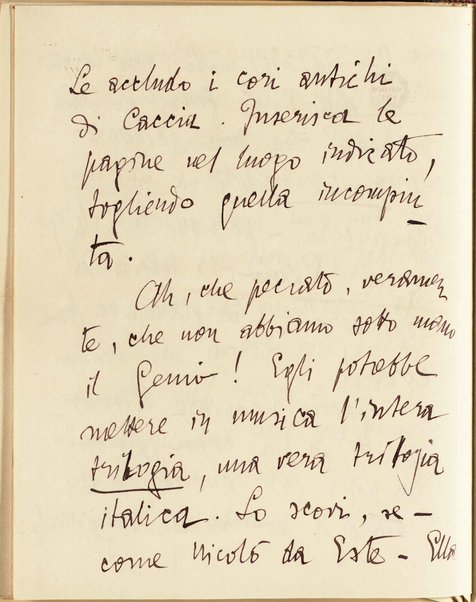 Le accludo i cori antichi
di Caccia. Inserisca le
pagine nel luogo indicato,
togliendo quella incompiu-
ta.
Ah, che peccato, veramen-
te, che non abbiamo sotto mano
il Genio! Egli potrebbe
mettere in musica l'intera
trilogia, una vera trilogia
italica. Lo scovi, se-
come Nicolò da Este - Ella